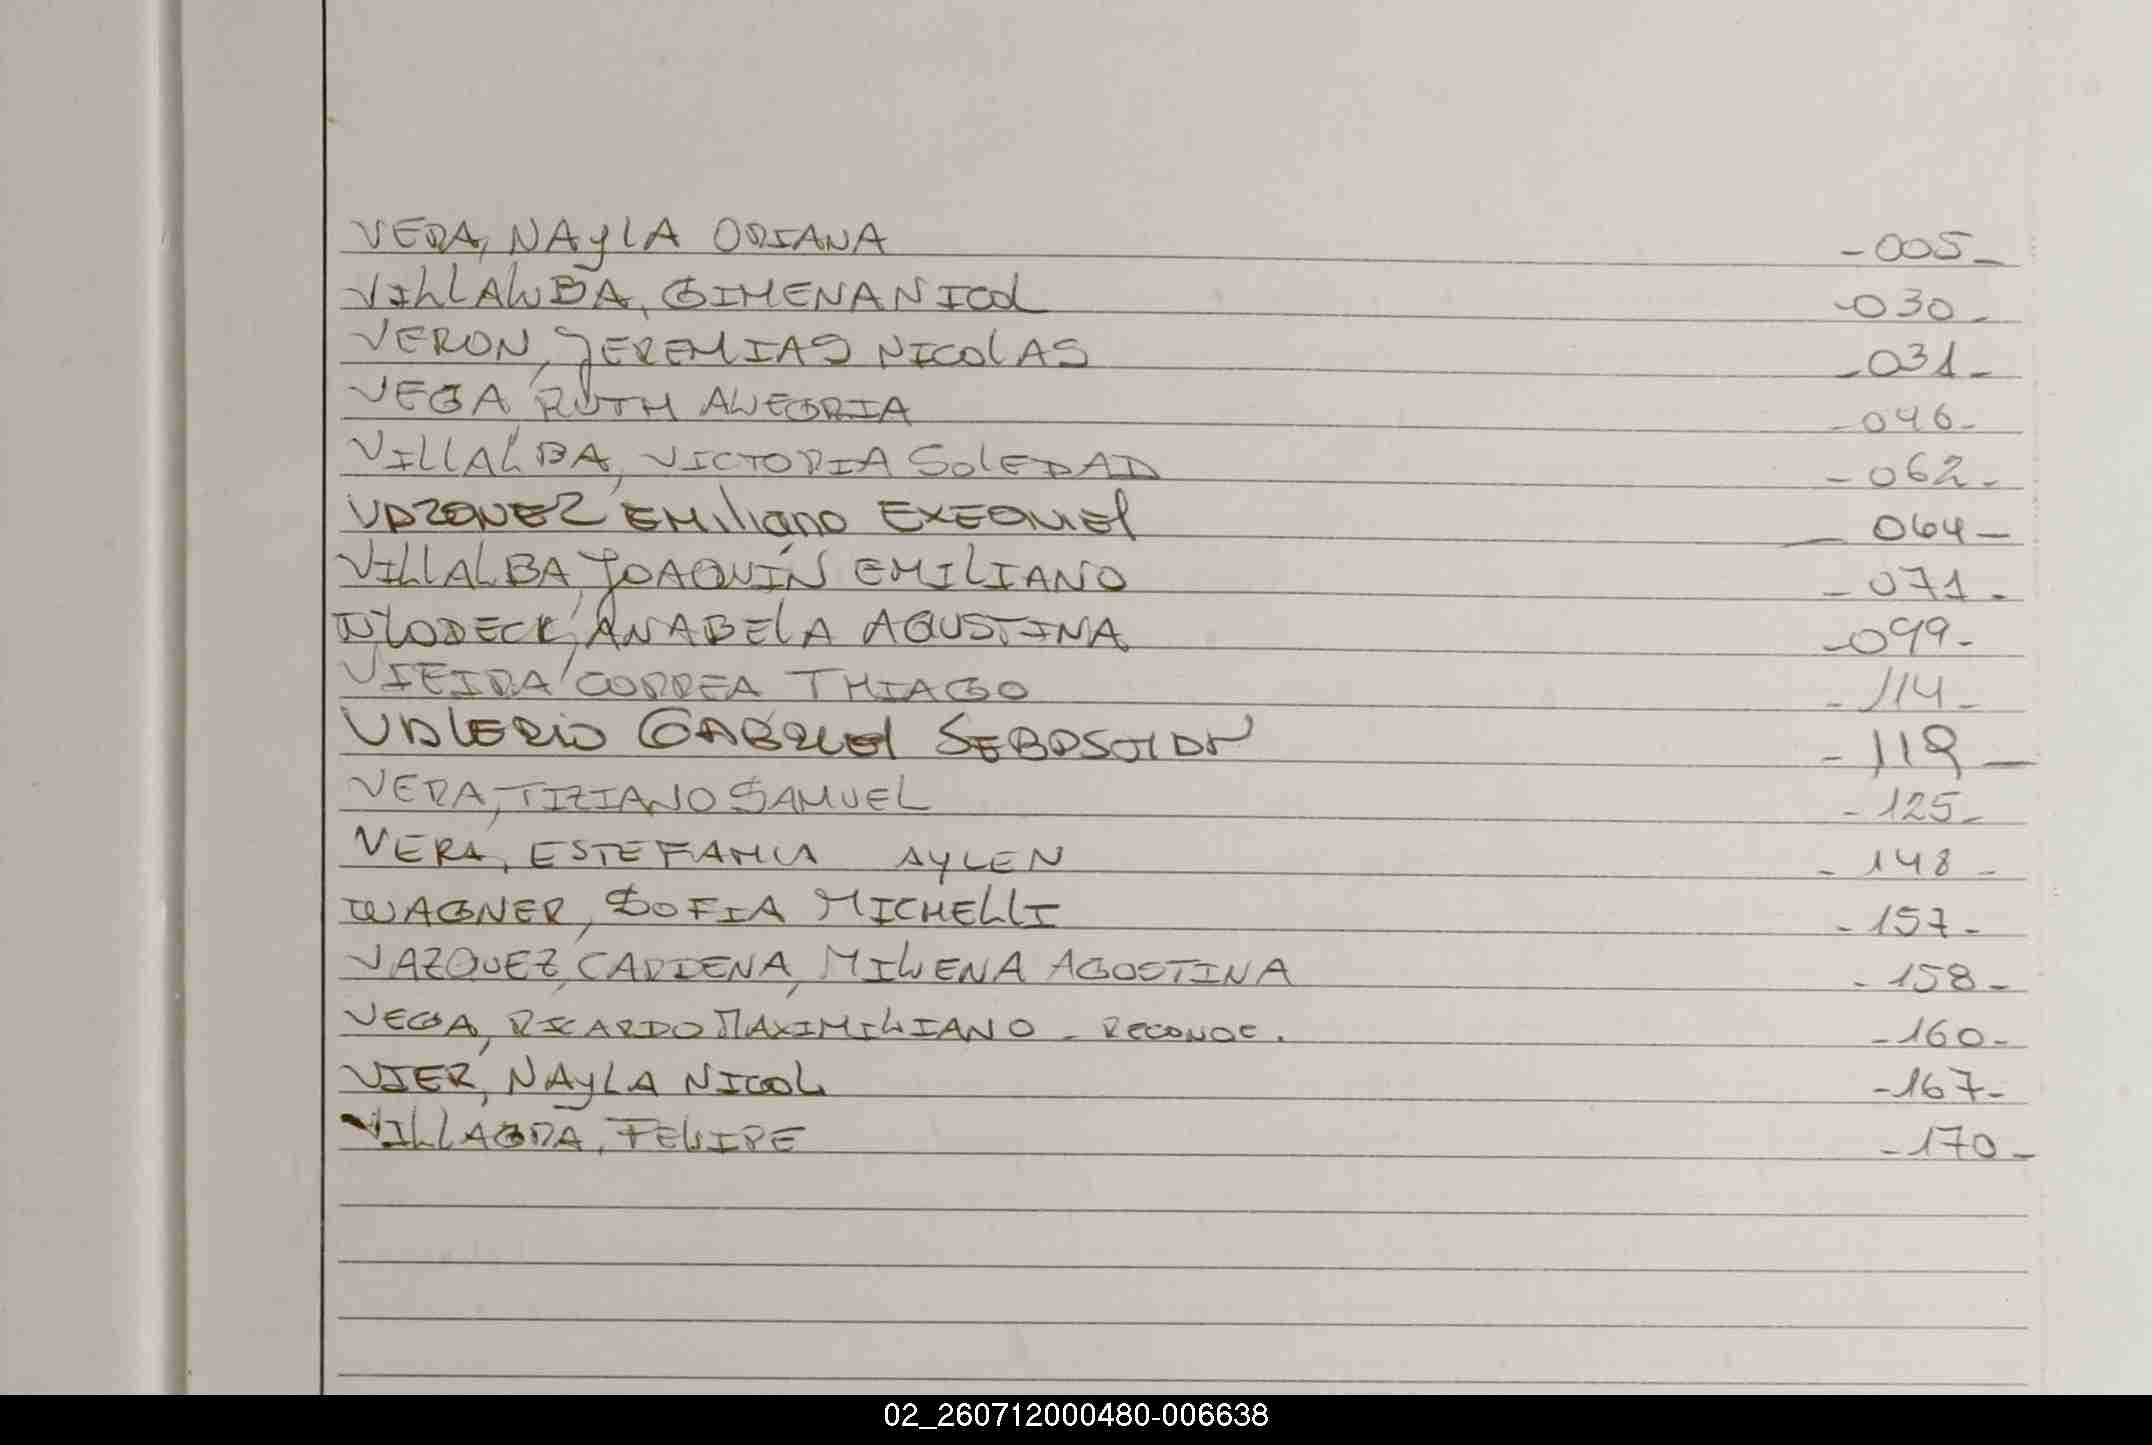 VERA, NAYLA ORIANA -005-
VILLALBA, GIMENA NICOL -030-
VERON, JEREMIAS NICOLAS -031-
VEGA, RUTH ALEGRIA -046-
VILLALBA, VICTORIA SOLEDAD -062-
VAZQUEZ EMILIANO EXEQUIEL - 064 -
VILLALBA, JOAQUÍN EMILIANO - 071 -
WLODECK, ANABELA AGUSTINA -099-
VIEIRA CORREA THIAGO - 114 -
VALERIO GABRIEL SEBASTIAN - 119 -
VERA, TIZIANO SAMUEL - 125 -
VERA, ESTEFANIA AYLEN - 148 -
WAGNER, SOFIA MICHELLI - 157 -
VAZQUEZ, CARDENA, MILENA AGOSTINA - 158 -
VEGA, RICARDO MAXIMILIANO - RECONOC. -160-
VIER, NAYLA NICOL -167-
VILLAGRA, FELIPE -170-
02_260712000480-006638